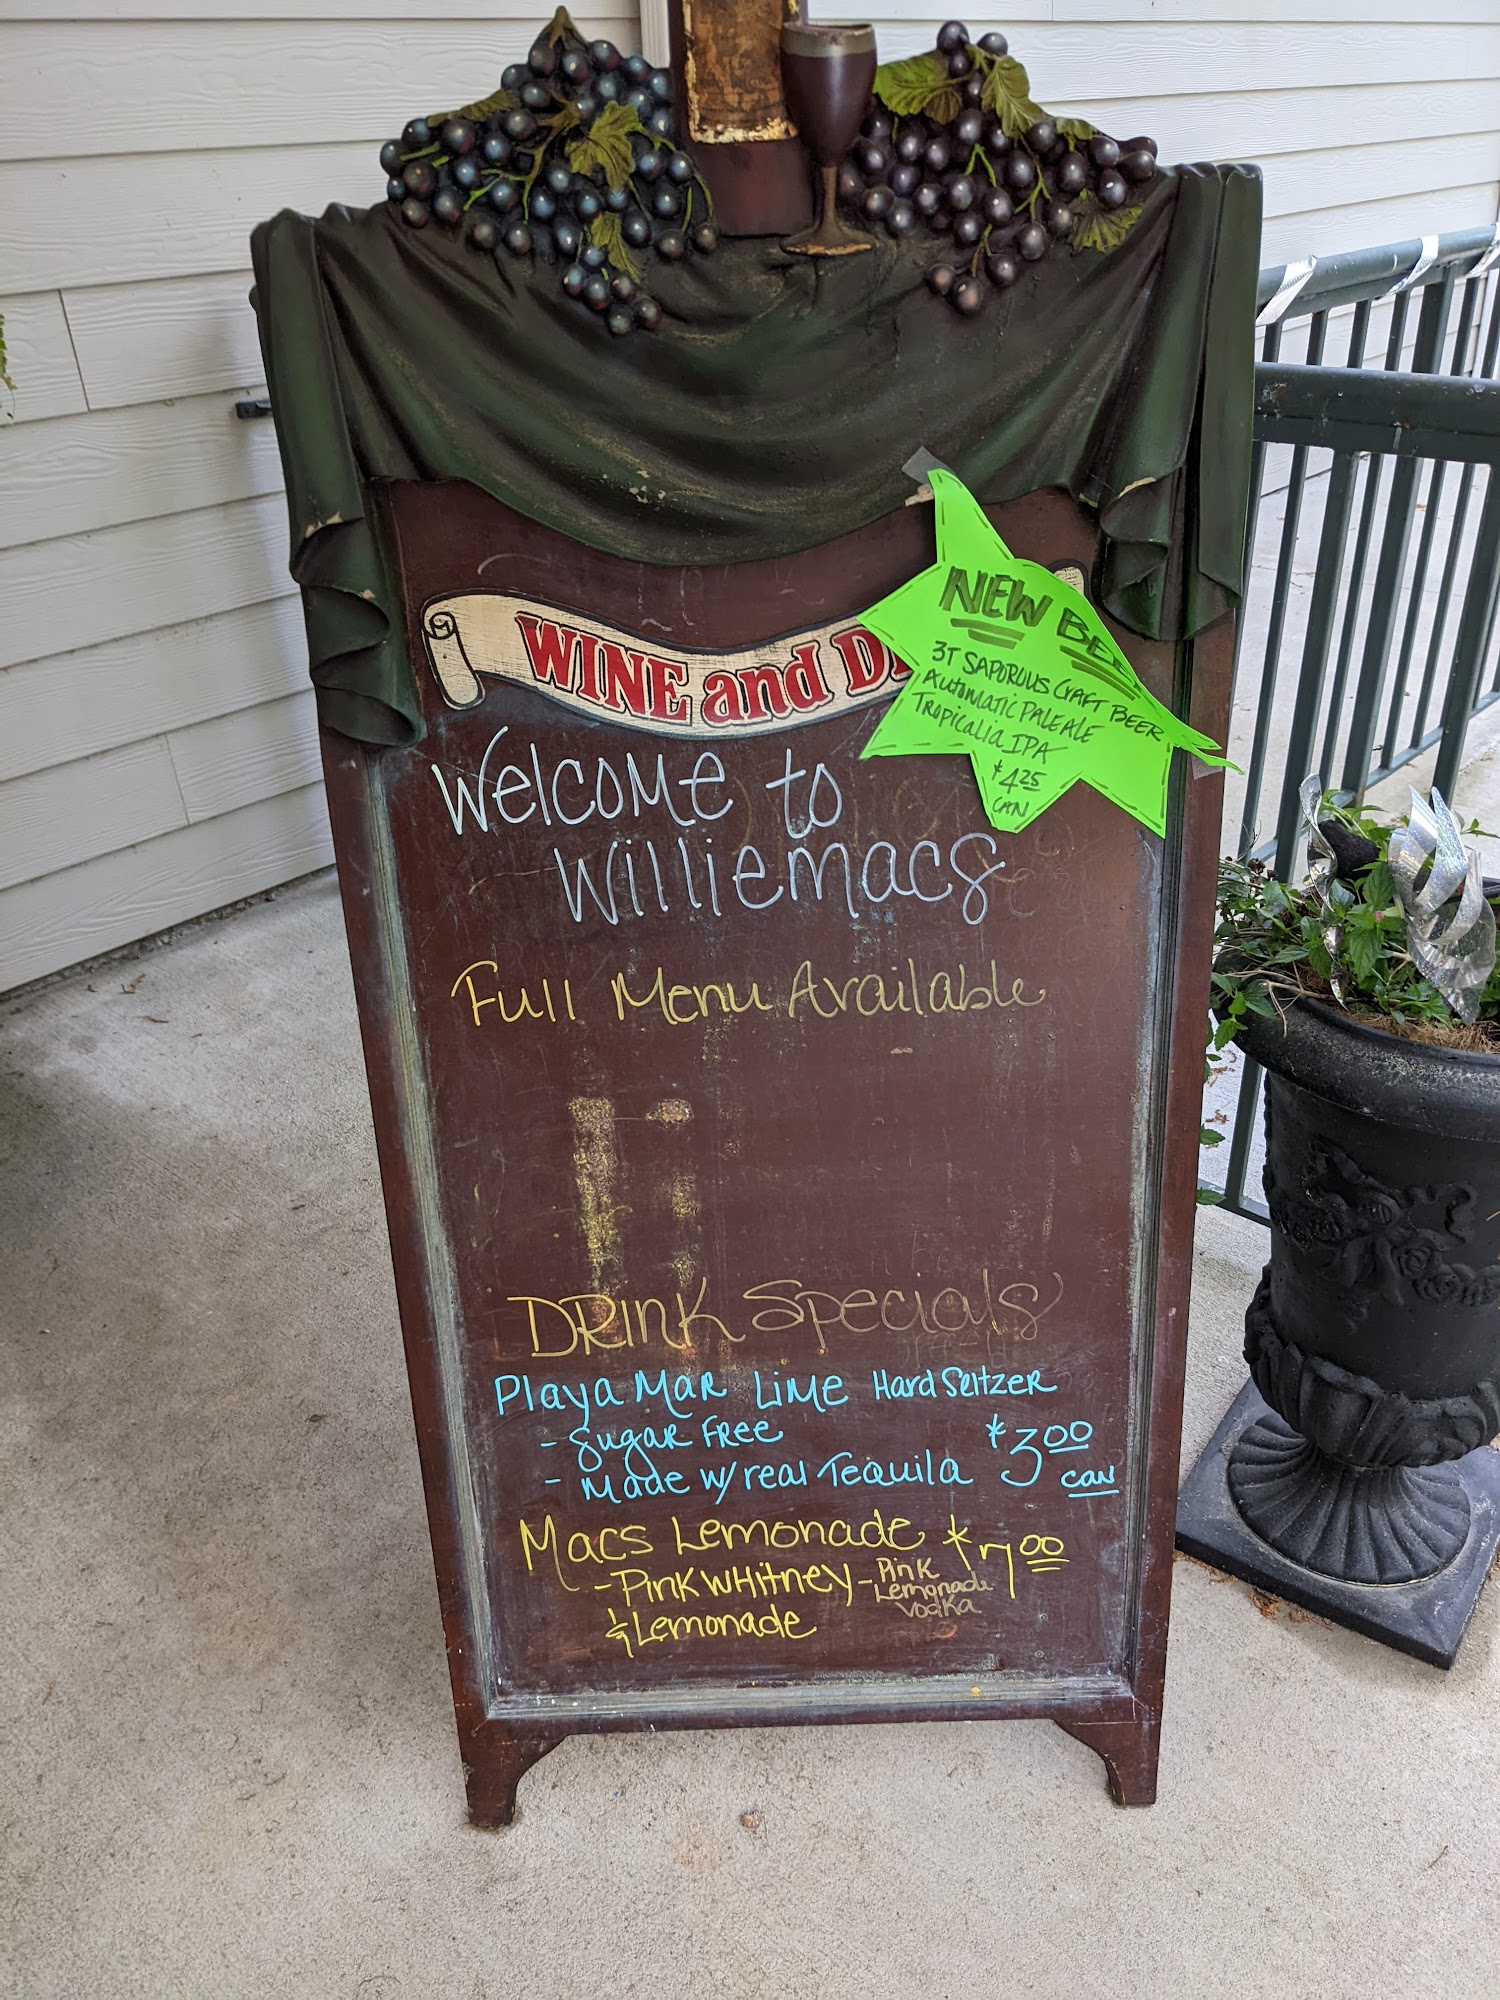 WINE and DI
NEW BEE
3T SAPOROUS CRAFT BEER
Automatic PALE ALE
Tropicalia IPA
$4.25
CAN
Welcome to
Williemacs
Full Menu Available
DRINK Specials
Playa MAR LIME Hard Seltzer
- Sugar Free
- Made w/ real Tequila $3.00 can
Macs Lemonade $7.00
- PINK WHITNEY - Pink Lemonade Vodka
& Lemonade